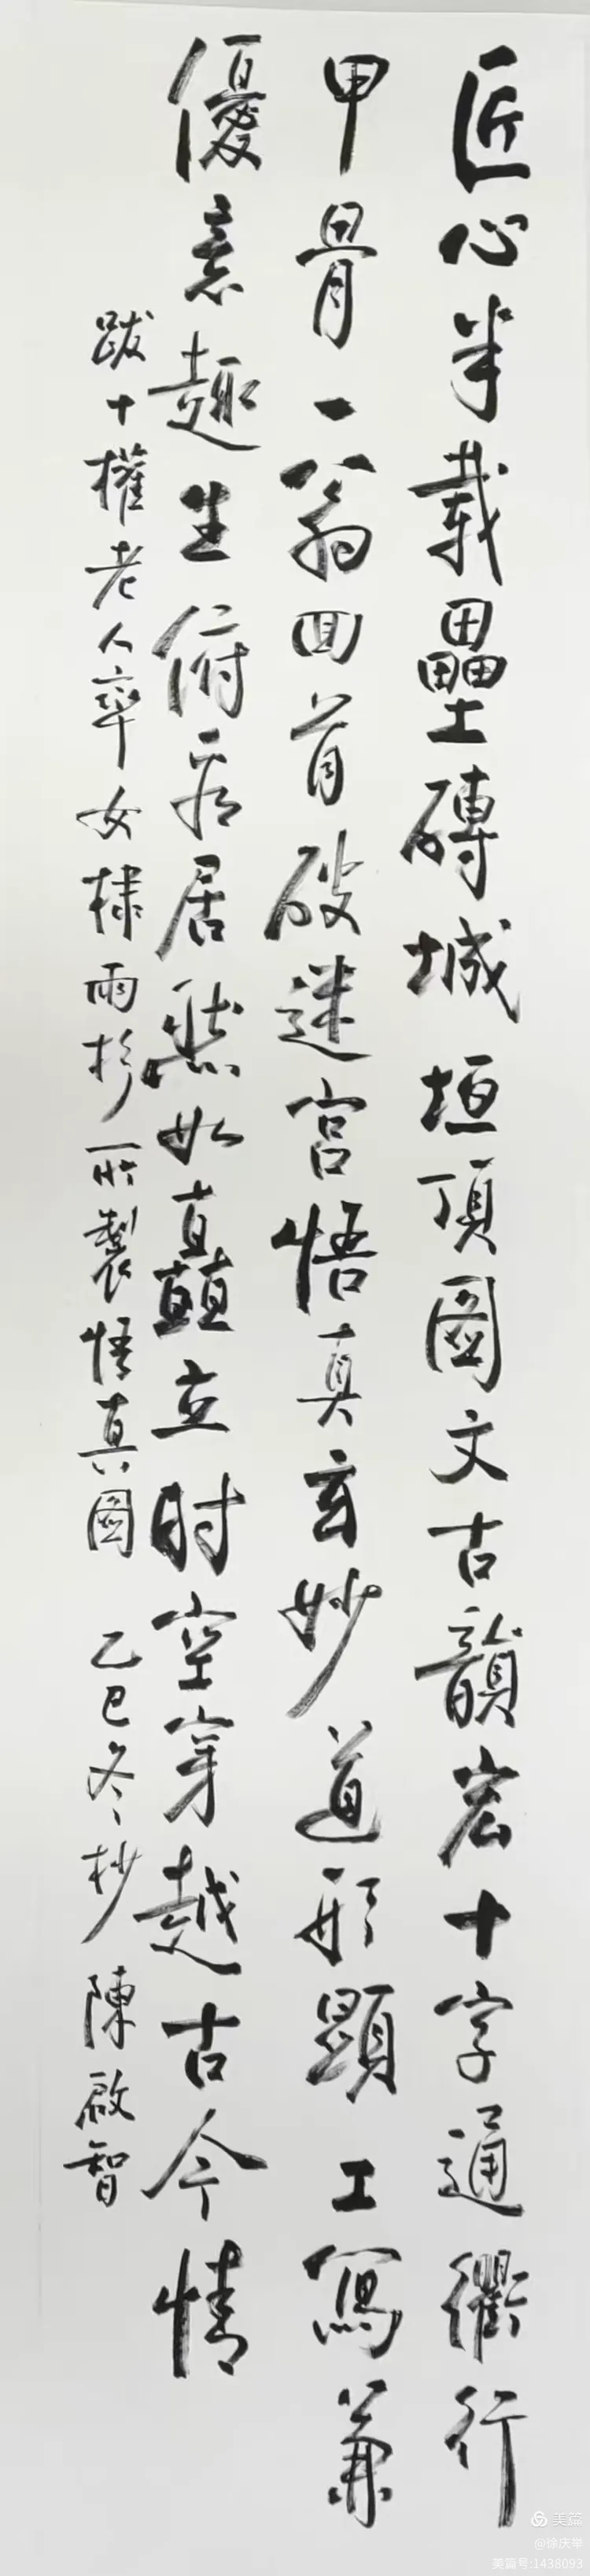 匠心半載壘磚城垣頂圖文古韻宏十字通衢行
甲骨一翁回首破迷宮悟真玄妙道形顯工寫兼
優意趣生俯看居然如矗立时空穿越古今情
跋十權老人率女棣雨杉所製悟真圖 乙巳冬杪 陳啟智
美篇
@徐庆举
美篇号:1438093